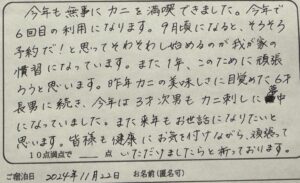 今年も無事にカニを満喫できました。今年で
6回目の利用になります。9月頃になると、そろそろ
予約だ!と思ってそわそわし始めるのが我が家の
慣習になっています。また1年、このために頑張
ろうと思います。昨年カニの美味しさに目覚めて6才
長男に続き、今年は3才次男もカニ刺しに夢中
になっていました。また来年もお世話になりたいと
思います。皆様も健康にお気を付けながら、頑張って
10点満点で 点 いただけましたらと祈っております。
ご宿泊日 2024年11月22日 お名前(匿名可)